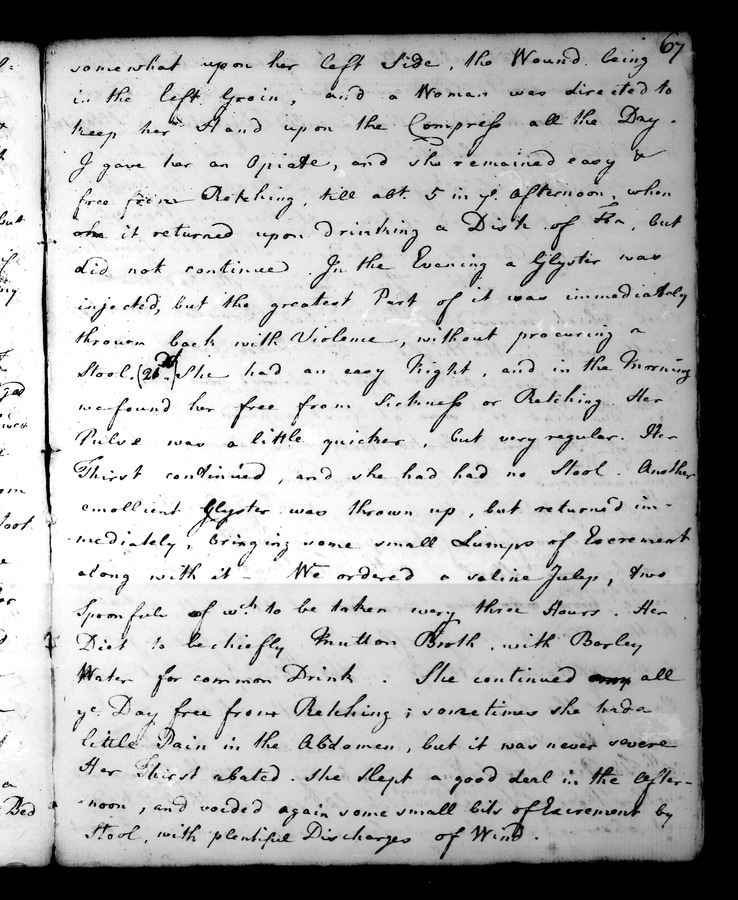 67
somewhat upon her left Side, the Wound being
in the left Groin, and a Woman was directed to
keep her Hand upon the Compress all the Day.
I gave her an Opiate, and she remained easy &
free from Retching, till abt. 5 in ye. Afternoon, when
it returned upon drinking a Dish of Tea, but
did not continue. In the Evening a Glyster was
injected, but the greatest Part of it was immediately
thrown back with Violence, without procuring a
Stool. She had an easy Night, and in the Morning
we found her free from Sickness or Retching. Her
Pulse was a little quicker, but very regular. Her
Thirst continued, and she had had no Stool. Another
emollient Glyster was thrown up, but return'd im-
mediately, bringing some small Lumps of Excrement
along with it - We ordered a saline Julep, two
Spoonfuls of wch. to be taken every three Hours. Her
Diet to be chiefly Mutton Broth, with Barley
Water for common Drink. She continued all
ye. Day free from Retching; sometimes she had a
little Pain in the Abdomen, but it was never severe
Her Thirst abated. She slept a good deal in the After-
-noon, and voided again some small bits of Excrement by
Stool, with plentiful Discharges of Wind.